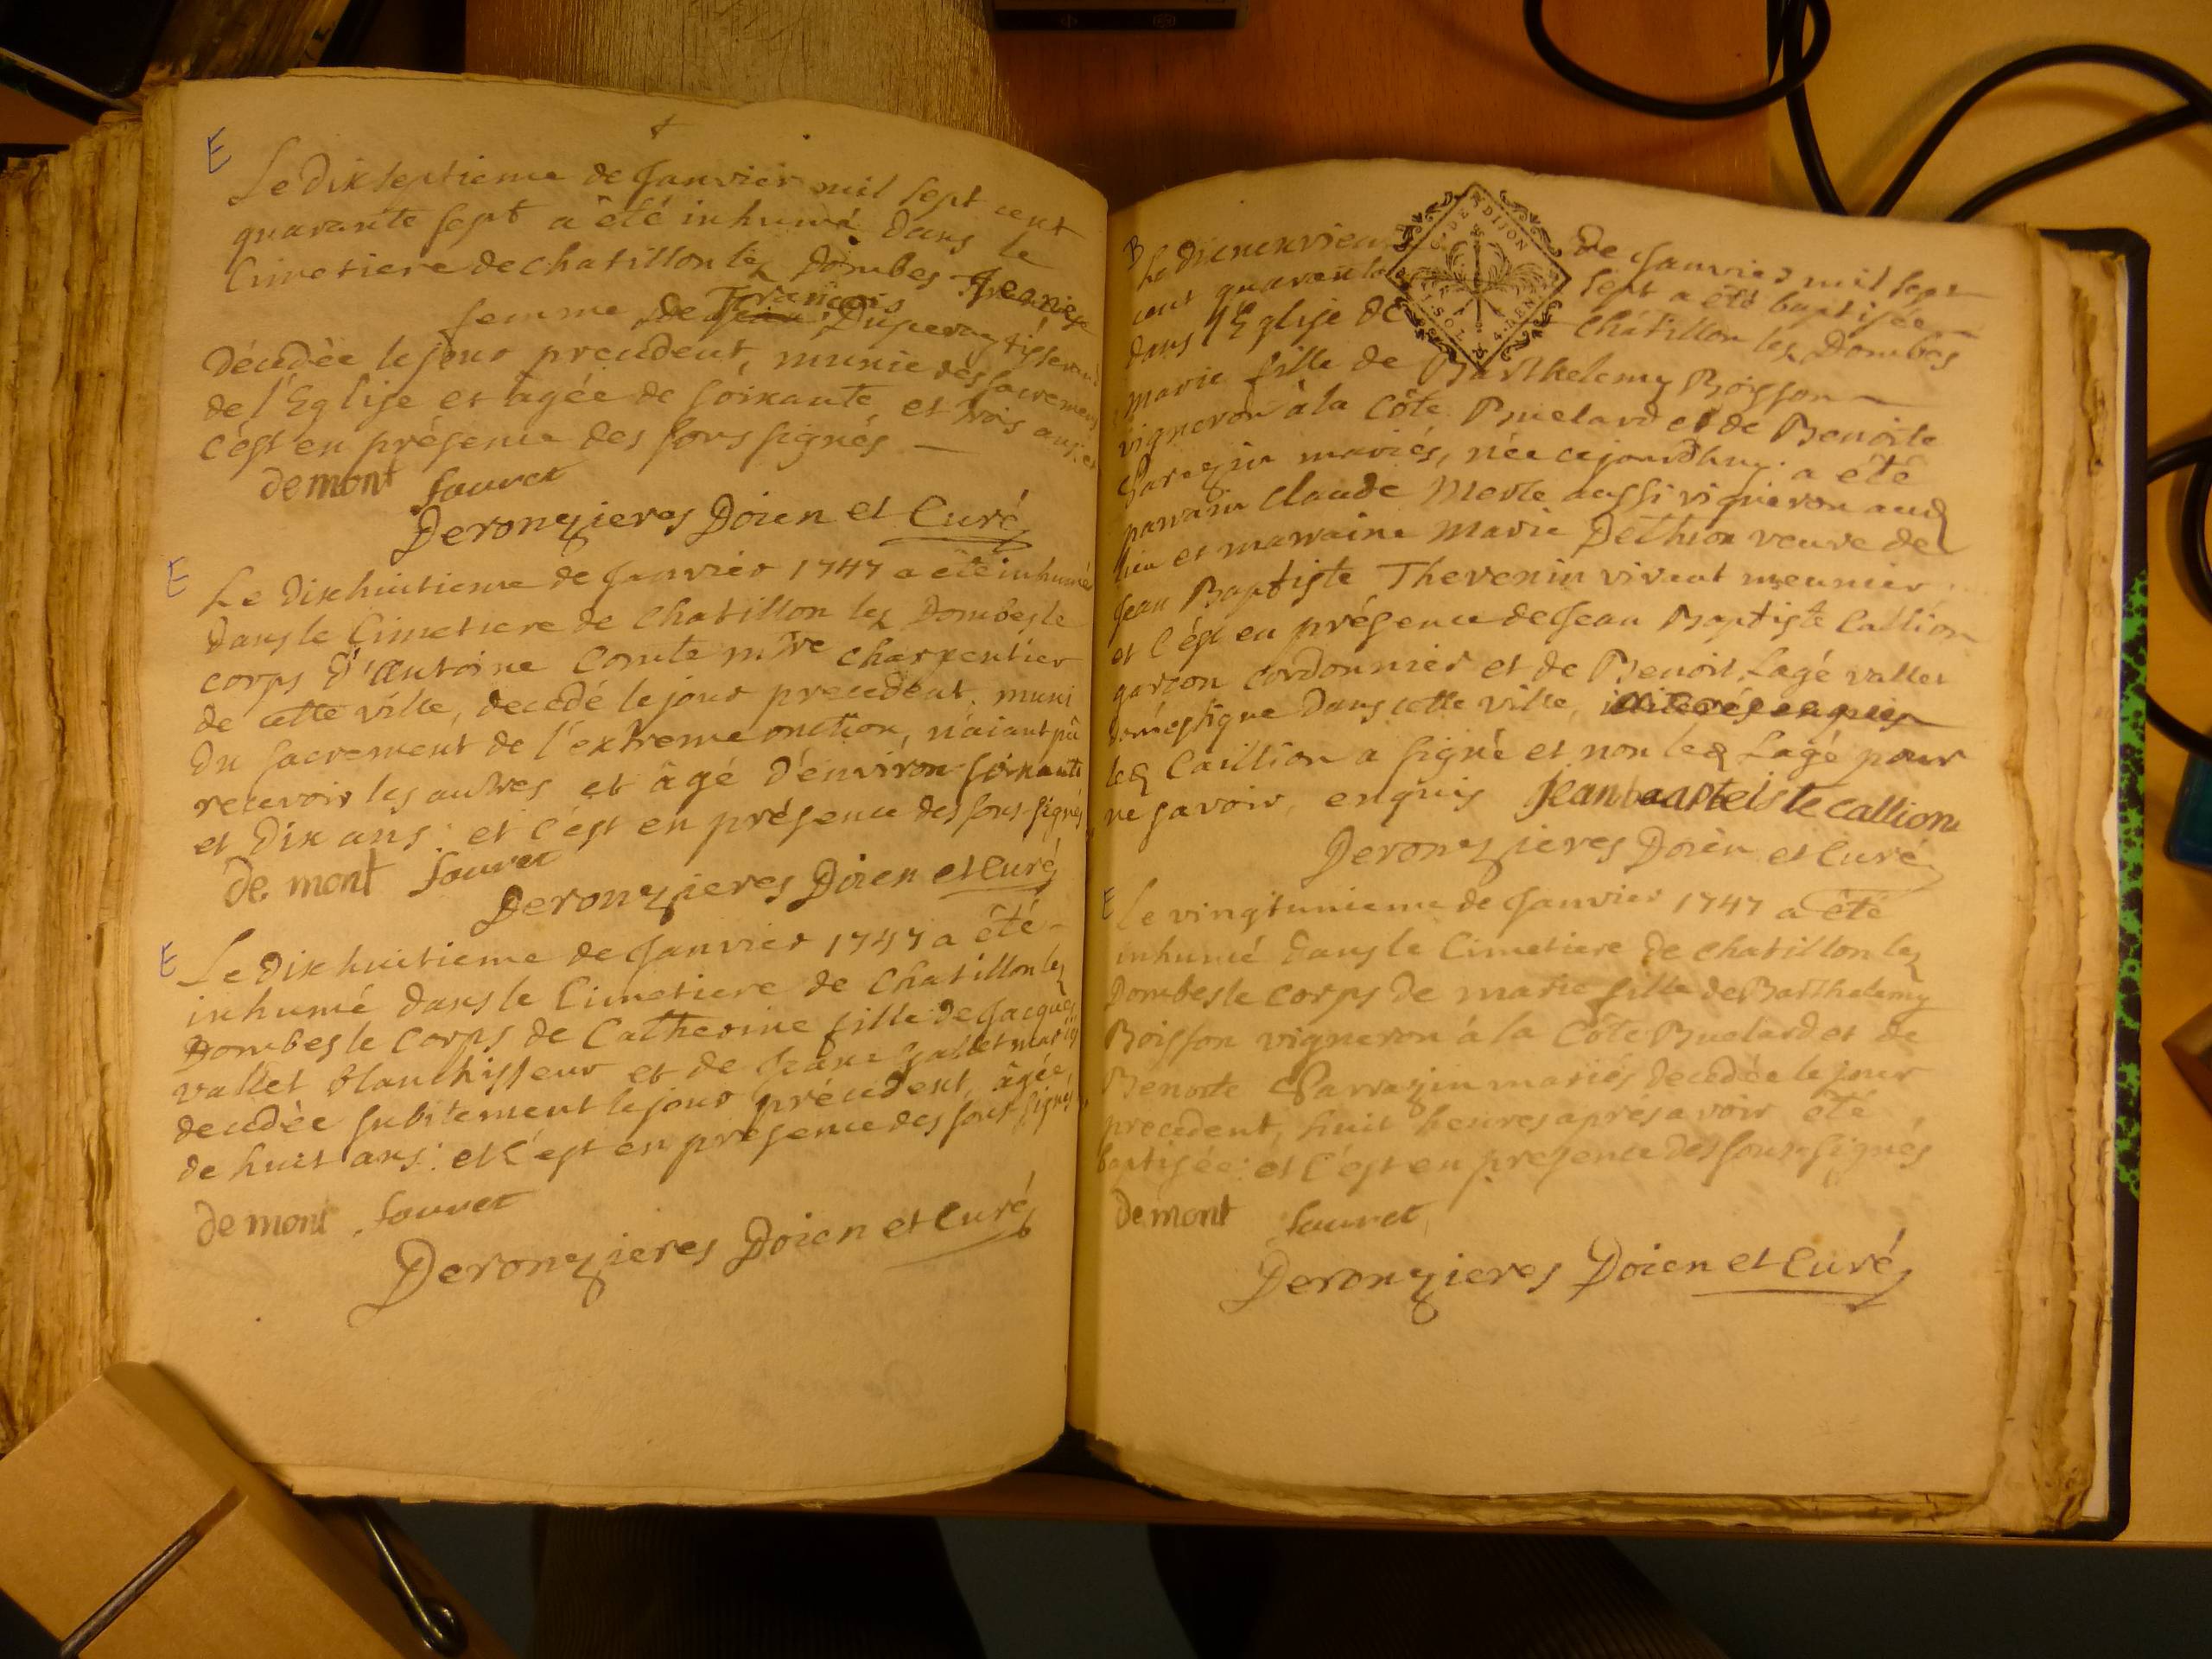 E
Le Dixseptieme de Janvier mil sept cent
quarante sept a été inhumé dans le
Cimetiere de chatillon lez Dombes
femme de François Duperay tisserand
Décédée le jour precedent, munie des sacremens
de l'Eglise et agée de soixante et trois ans: et
c'est en présence des sous signés
demont Souvet
Deronzieres Doien et Curé
E
Le Dixhuitieme de Janvier 1747 a été inhumé
Dans le Cimetiere de Chatillon lez Dombes le
corps d'Antoine Comte m.tre charpentier
de cette ville, decedé le jour precedent, muni
Du sacrement de l'extreme onction, n'aiant pû
recevoir les autres et âgé d'environ soixante
et Dix ans: et c'est en présence des sous-signés
de mont Souvet
Deronzieres Doien et Curé
E
Le Dixhuitieme de Janvier 1747 a été
inhumé dans le Cimetiere de Chatillon lez
Dombes le Corps de Catherine fille de Jacques
vallet blanchisseur et de Jeane Gallet mariés
decedée subitement le jour précedent, âgée
de huit ans: et c'est en presence des sous-signés
demont Souvet
Deronzieres Doien et Curé
G. DE DIJON
SOL
B
Le Dixneuvieme de Janvier mil sept
cent quarante sept a été baptisée
dans l'Eglise de Châtillon lez Dombes
marie fille de Barthelemy Boisson
vigneron à la Côte Buelard et de Benoite
Sarazin mariés, née cejourdhuy. a été
parrain Claude Merle aussi vigneron aud
lieu et marraine Marie Dethion veuve de
Jean Baptiste Thevenin vivant meunier
et c'est en présence de Jean Baptiste Callion
garçon cordonnier et de Benoit Lagé vallet
domestique dans cette ville,
led Caillion a signé et non led Lagé pour
ne savoir, enquis Jean baapteiste callion
Deronzieres Doien et Curé
E
Le vingtunieme de Janvier 1747 a été
inhumé dans le Cimetiere de chatillon lez
Dombes le corps de marie fille de Barthelemy
Boisson vigneron à la Côte Buelard et de
Benoite Sarrazin mariés decedée le jour
precedent, huit heures aprés avoir été
baptisée: et c'est en presence des sous-signés
demont Souvet
Deronzieres Doien et Curé